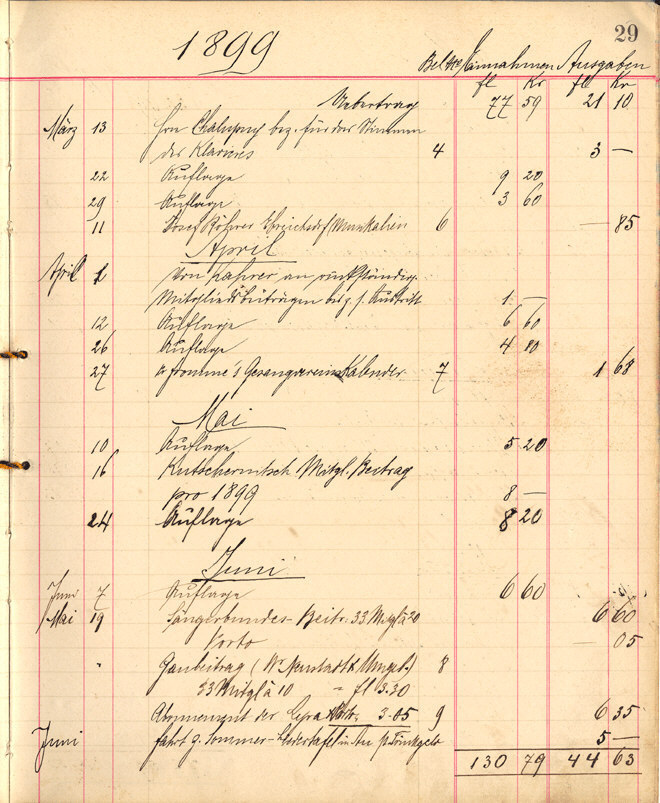 29
1899
Einnahmen Ausgaben
fl Kr fl Kr
Uebertrag 77 59 21 10
März 13 Hrn bez. für das Stimmen
des Klaviers 4 3 —
22 Auflage 9 20
29 Auflage 3 60
11 Josef Röhrer Musikalien 6 — 85
April
April 1 Von an rückständig.
Mitgliedsbeiträgen bez. s. Austritt 1 —
12 Auflage 6 60
26 Auflage 4 80
27 Fromme's Gesangvereins Kalender 7 1 68
Mai
10 Auflage 5 20
16 Kutschernitsch Mitgl. Beitrag
pro 1899 8 —
24 Auflage 8 20
Juni
Juni 7 Auflage 6 60
Mai 19 Sängerbundes-Beitr. 33 Mitgl à 20 6 60
Porto — 05
" Gaubeitrag (Wr Neustadt & Umgeb.) 8
33 Mitgl à 10 = fl 3.30
Abonnement der Lyra 3.05 9 6 35
Juni Fahrt z. Sommer-Liedertafel in 5 —
130 79 44 63